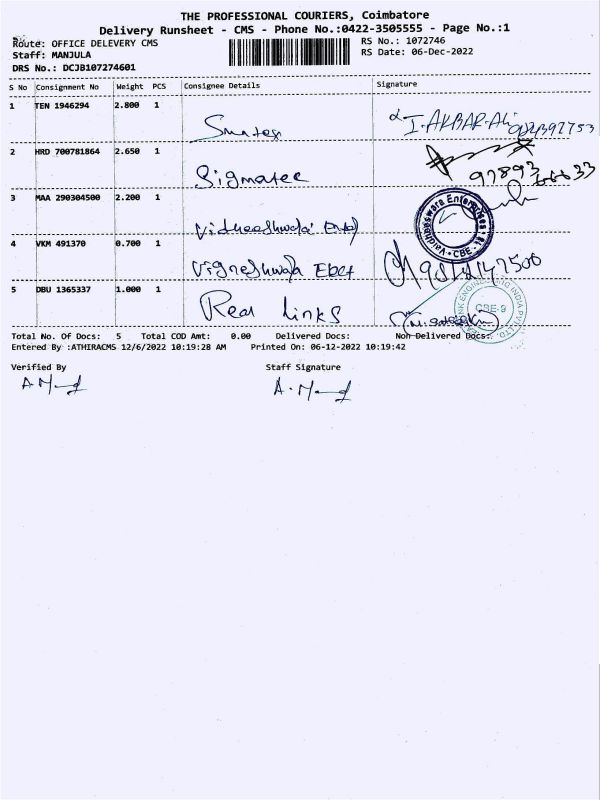 THE PROFESSIONAL COURIERS, Coimbatore
Delivery Runsheet - CMS - Phone No.:0422-3505555 - Page No.:1
Route: OFFICE DELEVERY CMS
RS No.: 1072746
Staff: MANJULA
RS Date: 06-Dec-2022
DRS No.: DCJB107274601
S No Consignment No Weight PCS Consignee Details Signature
1 TEN 1946294 2.800 1 I. AKBAR Ali
2 HRD 700781864 2.650 1 Sigmatec
3 MAA 290304500 2.200 1
Vaidheeswara Enterprises CBE
4 VKM 491370 0.700 1
5 DBU 1365337 1.000 1 Real Links
CBE-9
Total No. Of Docs: 5 Total COD Amt: 0.00 Delivered Docs: Non-Delivered Docs:
Entered By :ATHIRACMS 12/6/2022 10:19:28 AM Printed On: 06-12-2022 10:19:42
Verified By Staff Signature